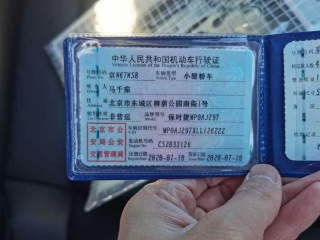 中华人民共和国机动车行驶证
Vehicle License of the People's Republic of China
号牌号码 京N67K58 车辆类型 小型轿车
Plate No. Vehicle Type
所有人 马千茹
住址 北京市东城区柳荫公园南街1号
使用性质 非营运 品牌型号 保时捷WP0AJ297
北京市公
安局公安
交通管理局
车辆识别代号 WP0AJ297XLL126222
发动机号码 CSZ033126
Engine No.
注册日期 2020-07-10 发证日期 2020-07-10